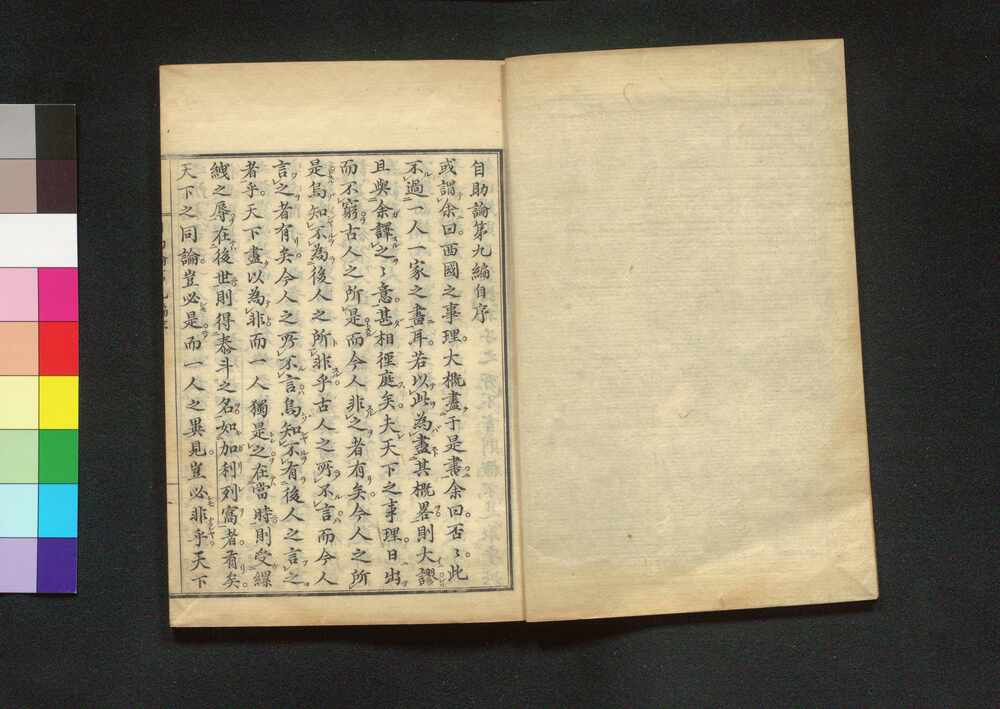 自助論第九編自序
或謂余曰西國之事理大概盡于是書余曰否〻此
不過一人一家之書耳若以此為盡其概畧則大謬
且與余譯之〻意甚相徑庭矣夫天下之事理日出
而不窮古人之所是而今人非之者有矣今人之所
是烏知不為後人之所非乎古人之所不言而今人
言之者有矣今人之所不言烏知不有後人之言之
者乎天下盡以為非而一人獨是之在當時則受縲
絏之辱在後世則得泰斗之名如加利列窩者有矣
天下之同論豈必是而一人之異見豈必非乎天下